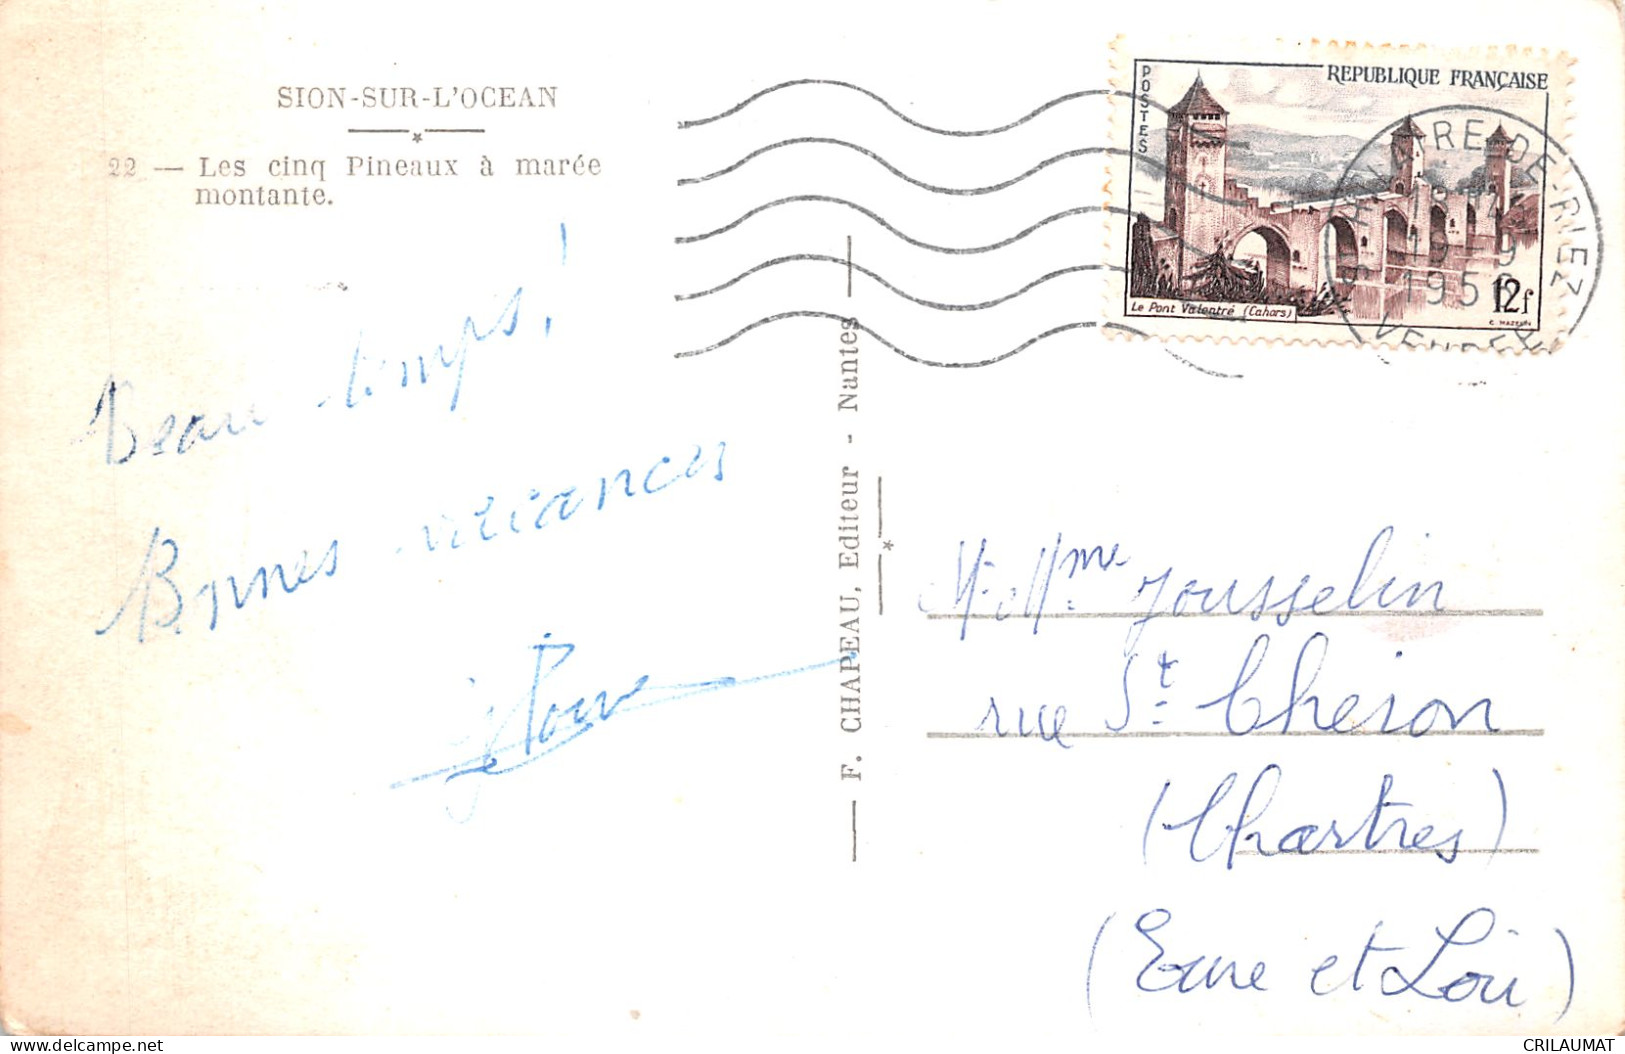 SION-SUR-L'OCEAN
22 — Les cinq Pineaux à marée
montante.
Beau temps!
Bonnes vacances
F. CHAPEAU, Editeur - Nantes
POSTES
REPUBLIQUE FRANÇAISE
Le Pont Valentré (Cahors)
12f
HILAIRE-DE-RIEZ
19 9
195
VENDEE
M. Mme Jousselin
rue St Cheron
(Chartres)
(Eure et Loir)
CRILAUMAT